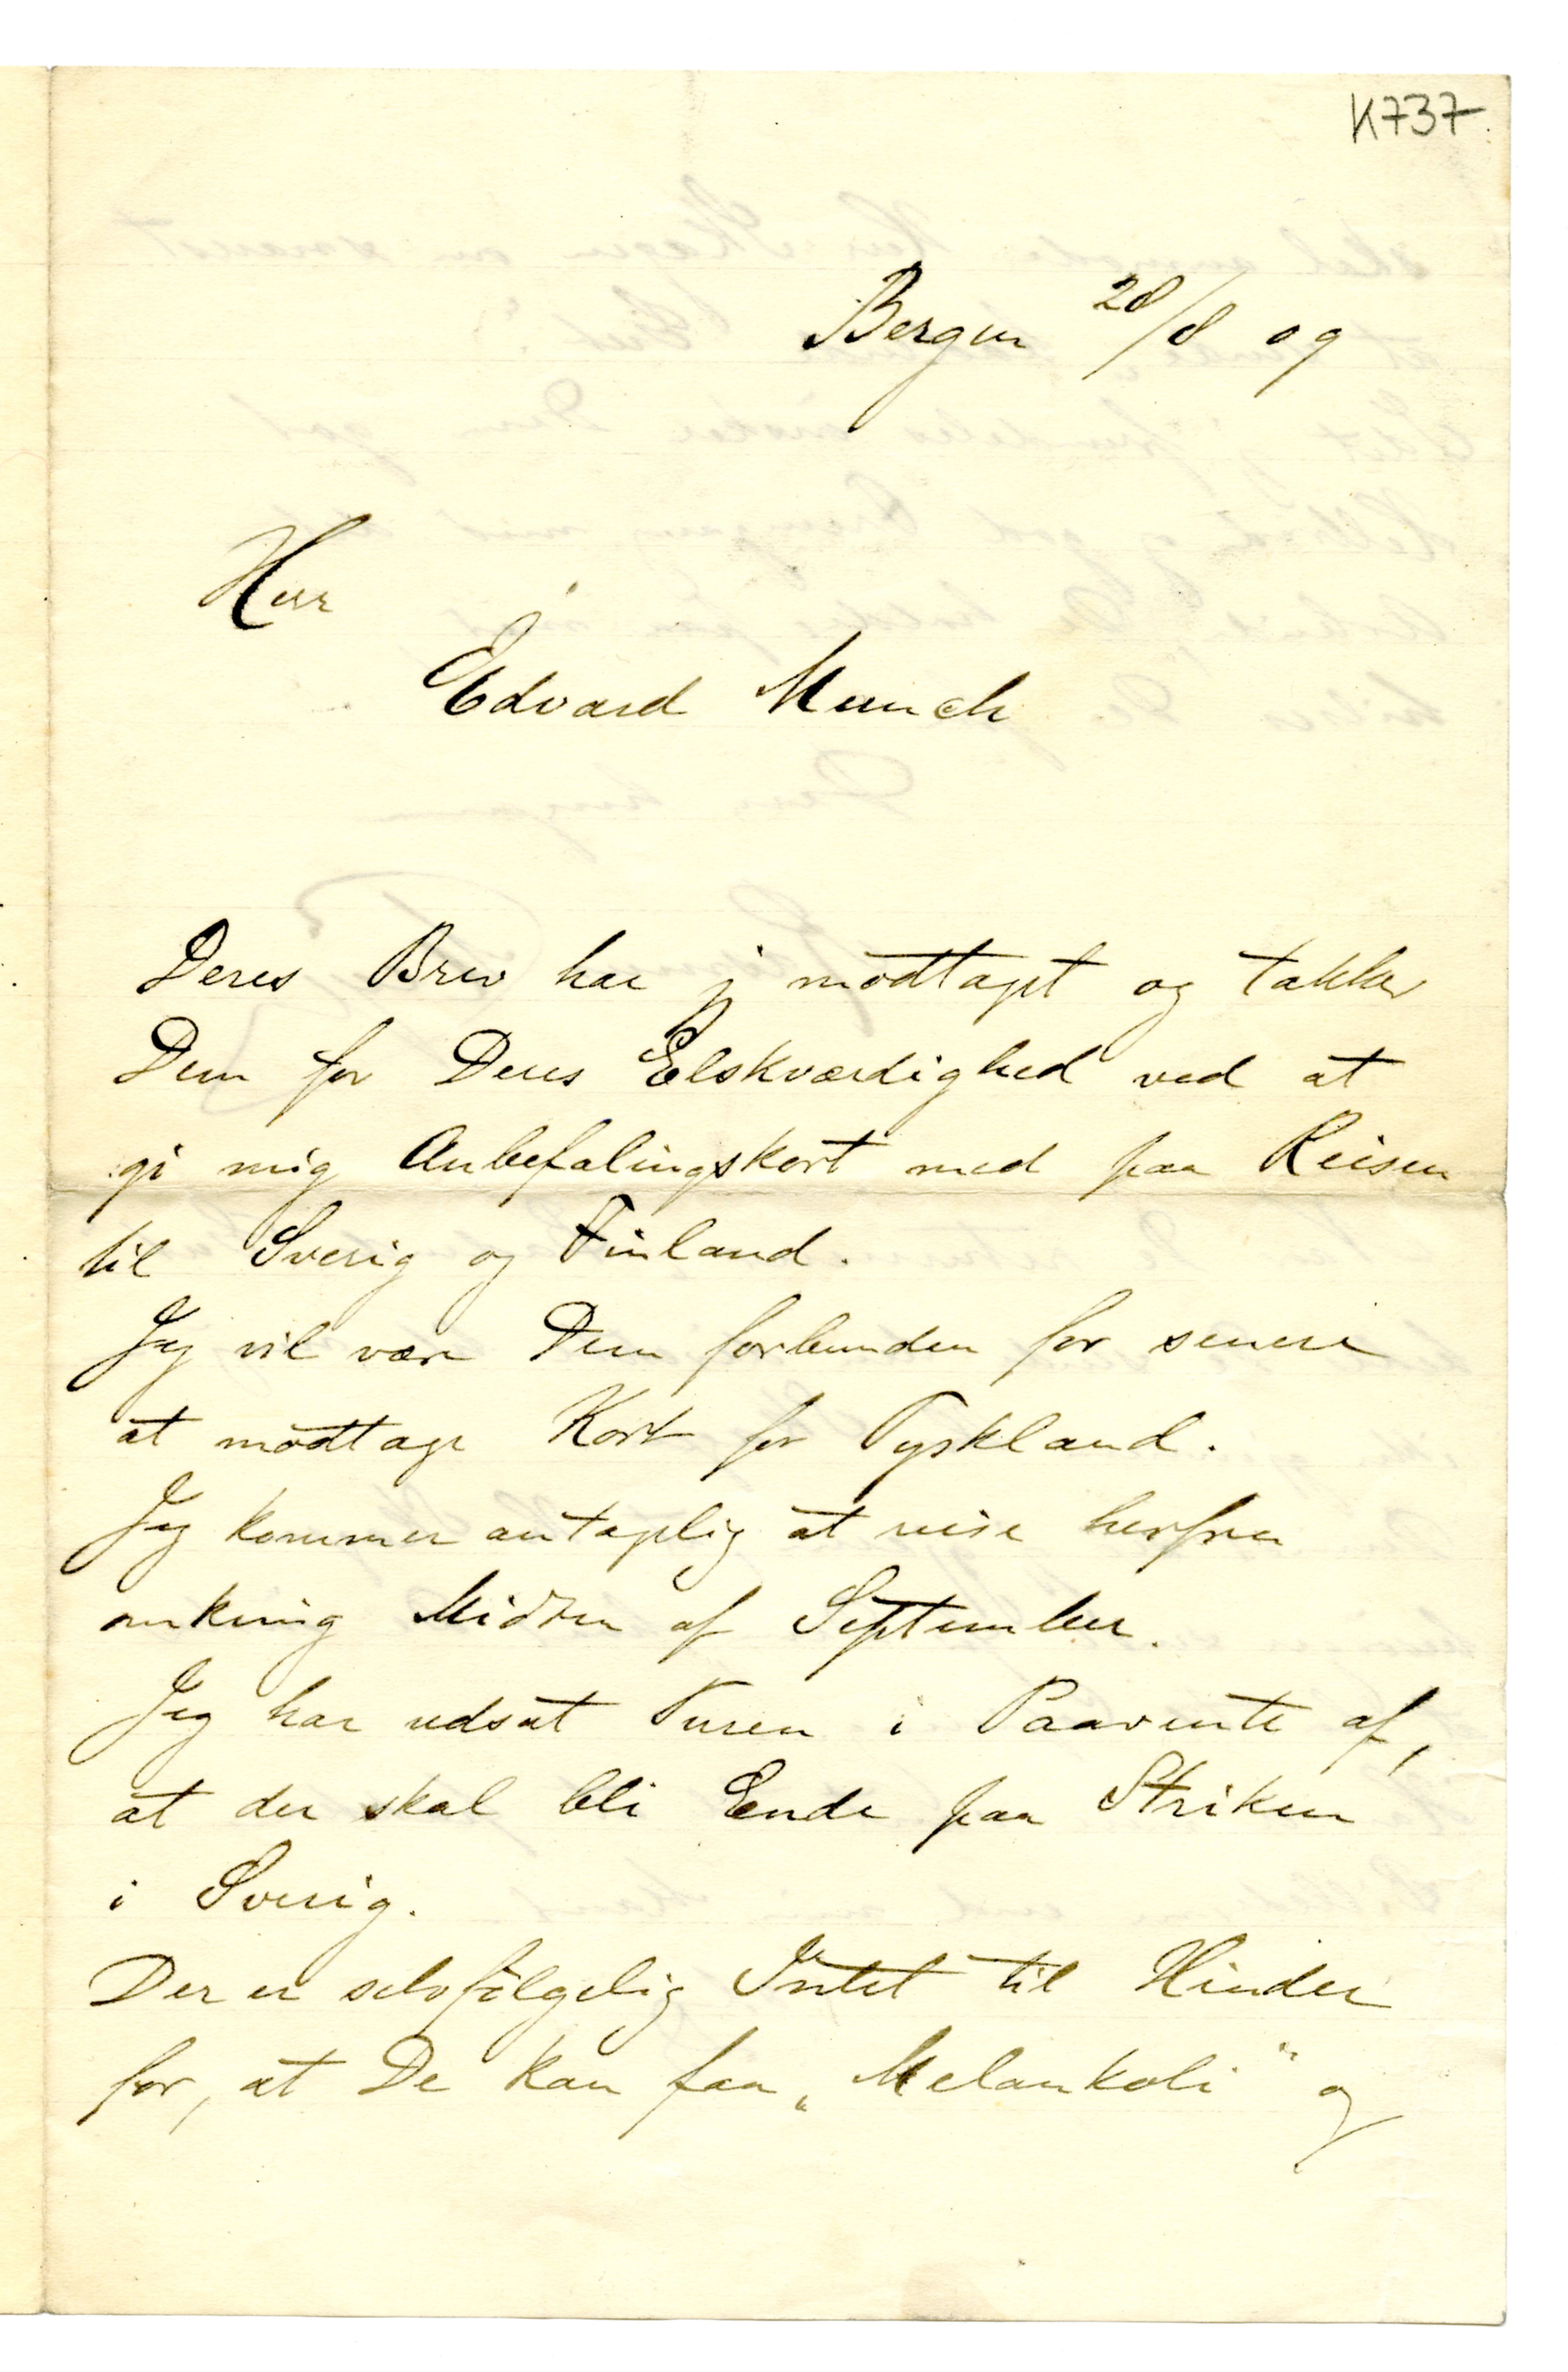 K737
Bergen 28/8 09
Herr
Edvard Munch
Deres Brev har jeg modtaget og takker
Dem for Deres Elskværdighed ved at
gi mig Anbefalingskort med paa Reisen
til Sverig og Finland.
Jeg vil være Dem forbunden for senere
at modtage Kort for Tyskland.
Jeg kommer antagelig at reise herfra
omkring Midten af September.
Jeg har udsat Turen i Paavente af,
at der skal bli Ende paa Striken
i Sverig.
Der er selvfølgelig Intet til Hinder
for, at De kan faa „Melankoli“ og